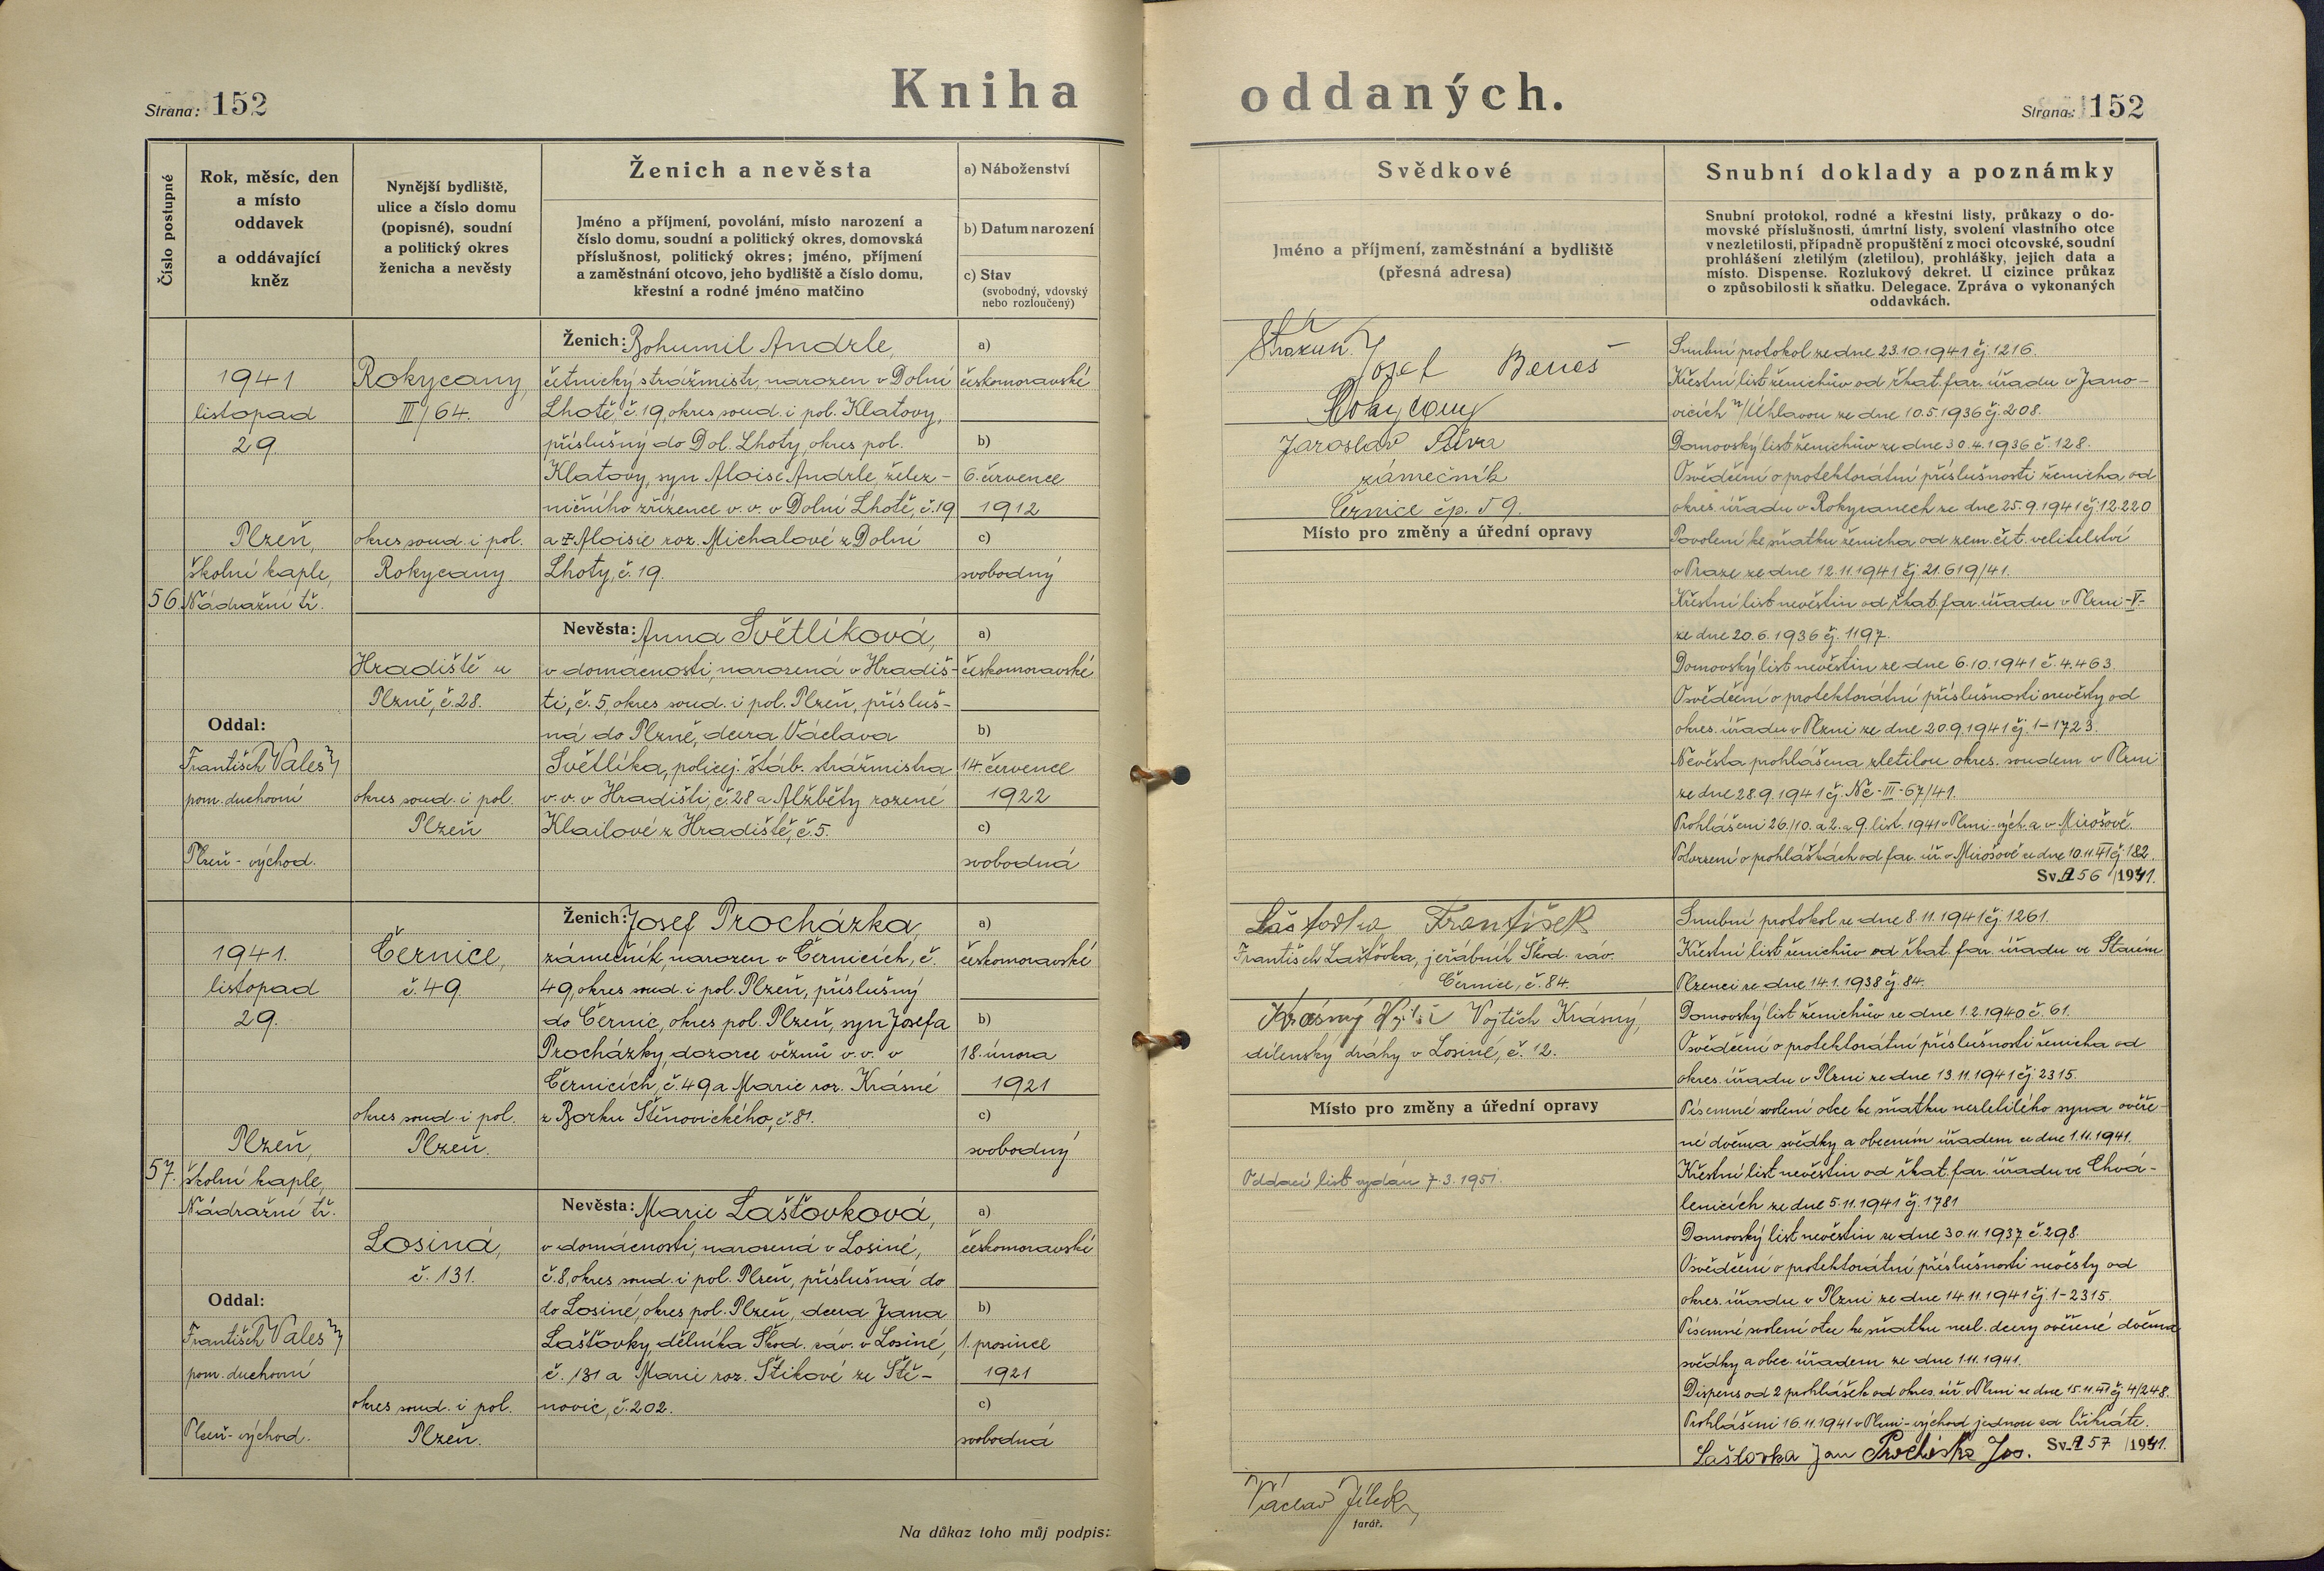 Kniha oddaných.
Strana: 152
Strana: 152
Číslo postupné
Rok, měsíc, den
a místo
oddavek
a oddávající
kněz
Nynější bydliště,
ulice a číslo domu
(popisné), soudní
a politický okres
ženicha a nevěsty
Ženich a nevěsta
Jméno a příjmení, povolání, místo narození a
číslo domu, soudní a politický okres, domovská
příslušnost, politický okres; jméno, příjmení
a zaměstnání otcovo, jeho bydliště a číslo domu,
křestní a rodné jméno matčino
a) Náboženství
b) Datum narození
c) Stav
(svobodný, vdovský
nebo rozloučený)
Svědkové
Jméno a příjmení, zaměstnání a bydliště
(přesná adresa)
Snubní doklady a poznámky
Snubní protokol, rodné a křestní listy, průkazy o do-
movské příslušnosti, úmrtní listy, svolení vlastního otce
v nezletilosti, případně propuštění z moci otcovské, soudní
prohlášení zletilým (zletilou), prohlášky, jejich data a
místo. Dispense. Rozlukový dekret. U cizince průkaz
o způsobilosti k sňatku. Delegace. Zpráva o vykonaných
oddavkách.
56.
1941
listopad
29
Plzeň,
školní kaple,
Nádražní tř.
Oddal:
František Vales
pom. duchovní
Plzeň-východ.
Rokycany,
III/64.
okres soud. i pol.
Rokycany
Hradiště u
Plzně, č. 28.
okres soud. i pol.
Plzeň
Ženich: Bohumil Andrle,
četnický strážmistr, narozen v Dolní
Lhotě, č. 19, okres soud. i pol. Klatovy,
příslušný do Dol. Lhoty, okres pol.
Klatovy, syn Aloise Andrle, želez-
ničního zřízence v. v. v Dolní Lhotě, č. 19
a Aloisie roz. Michalové z Dolní
Lhoty, č. 19.
a)
českomoravské
b)
6. července
1912
c)
svobodný
Nevěsta: Anna Světlíková,
v domácnosti, narozená v Hradiš-
ti, č. 5, okres soud. i pol. Plzeň, přísluš-
ná do Plzně, dcera Václava
Světlíka, policej. štáb. strážmistra
v. v. v Hradišti, č. 28 a Alžběty rozené
Klailové z Hradiště, č. 5.
a)
českomoravské
b)
14. července
1922
c)
svobodná
Josef Beneš
Rokycany
Jaroslav
zámečník
Černice čp. 59.
Místo pro změny a úřední opravy
Snubní protokol ze dne 23.10.1941 čj. 1216.
Křestní list ženichův od řkat. far. úřadu v Jano-
vicích n/Úhlavou ze dne 10.5.1936 čj. 208.
Domovský list ženichův ze dne 30.4.1936 č. 128.
Osvědčení o protektorátní příslušnosti ženicha od
okres. úřadu v Rokycanech ze dne 25.9.1941 čj. 12.220
Povolení ke sňatku ženicha od zem. čet. velitelství
v Praze ze dne 12.11.1941 čj. 21.619/41.
Křestní list nevěstin od řkat. far. úřadu v Plzni-V-
ze dne 20.6.1936 čj. 1197.
Domovský list nevěstin ze dne 6.10.1941 č. 4.463.
Osvědčení o protektorátní příslušnosti nevěsty od
okres. úřadu v Plzni ze dne 20.9.1941 čj. 1-1723.
Nevěsta prohlášena zletilou okres. soudem v Plzni
ze dne 28.9.1941 čj. Nc-III-67/41.
Prohlášeni 26./10. a 2. a 9. list. 1941 v Plzni-vých. a v Mirošově.
Potvrzení o prohláškách od far. úř. v Mirošově ze dne 10.11.41 čj. 182.
Sv. 56/1941.
57.
1941.
listopad
29.
Plzeň,
školní kaple,
Nádražní tř.
Oddal:
František Vales
pom. duchovní
Plzeň-východ.
Černice,
č. 49
okres soud. i pol.
Plzeň.
Losiná,
č. 131.
okres soud. i pol.
Plzeň.
Ženich: Josef Procházka,
zámečník, narozen v Černicích, č.
49, okres soud. i pol. Plzeň, příslušný
do Černic, okres pol. Plzeň, syn Josefa
Procházky, dozorce vězňů v. v. v
Černicích, č. 49 a Marie roz. Krásné
z Borku Štěnovického, č. 81.
a)
českomoravské
b)
18. února
1921
c)
svobodný
Nevěsta: Marie Lašťovková,
v domácnosti, narozená v Losiné,
č. 8, okres soud. i pol. Plzeň, příslušná do
do Losiné, okres pol. Plzeň, dcera Jana
Lašťovky, dělníka Škod. záv. v Losiné,
č. 131 a Marie roz. Štikové ze Ště-
novic, č. 202.
a)
českomoravské
b)
1. prosince
1921
c)
svobodná
Lašťovka František
František Lašťovka, jeřábník Škod. záv.
Černice, č. 84.
Krásný Vojtěch Krásný,
dílenský dráhy v Losiné, č. 12.
Místo pro změny a úřední opravy
Oddací list vydán 7.3.1951.
Snubní protokol ze dne 8.11.1941 čj. 1261.
Křestní list ženichův od řkat. far. úřadu ve Starém
Plzenci ze dne 14.1.1938 čj. 84.
Domovský list ženichův ze dne 1.2.1940 č. 61.
Osvědčení o protektorátní příslušnosti ženicha od
okres. úřadu v Plzni ze dne 13.11.1941 čj. 2315.
Písemné svolení otce ke sňatku nezletilého syna ověře-
né dvěma svědky a obecním úřadem ze dne 1.11.1941.
Křestní list nevěstin od řkat. far. úřadu ve Chvá-
lenicích ze dne 5.11.1941 čj. 1781
Domovský list nevěstin ze dne 30.11.1937 č. 298.
Osvědčení o protektorátní příslušnosti nevěsty od
okres. úřadu v Plzni ze dne 14.11.1941 čj. 1-2315.
Písemné svolení otce ke sňatku nezl. dcery ověřené dvěma
svědky a obec. úřadem ze dne 1.11.1941.
Dispens od 2 prohlášek od okres. úř. v Plzni ze dne 15.11.41 čj. 4/248.
Prohlášeni 16.11.1941 v Plzni-východ jednou za třikráte.
Lašťovka Jan Procházka Jos. Sv. 57/1941.
Na důkaz toho můj podpis:
Václav Jílek
farář.